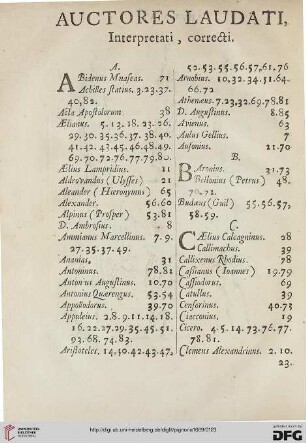 AUCTORES LAUDATI,
Interpretati, correcti.
A.
ABidenus Mnaseas. 71
Achilles statius. 3.23.37.
40,82.
Acta Apostolorum 38
Ælianus. 5.13.18.23.26.
29.30.35.36.37.38.40.
41.42.43.45.46.48.49.
69.70.72.76.77.79.80.
Ælius Lampridius. 11
Aldrovandus (Ulysses) 21
Aleander (Hieronymus) 65
Alexander. 56.60
Alpinus (Prosper) 53.81
D. Ambrosius. 8
Ammianus Marcellinus. 7.9.
27.35.37.49.
Ananias, 31
Antoninus. 78.81
Antonius Augustinus. 10.70
Antonius Quærengus. 53.54
Appollodorus. 39.70
Appuleius. 2.8.9.11.14.18.
16.22.27.29.35.45.51.
93.68.74.83.
Aristoteles. 14.30.42.43.47,
52.53.55.56.57,61.76
Arnobius. 10,32.34.51.64.
66.72
Athenæus. 7.23,32.69.78.81
D. Augustinus. 8.85
Avienus. 63
Aulus Gellius. 7
Ausonius. 21.70
B.
BArnius. 31.73
Bellonius (Petrus) 48.
70.71.
Budæus (Guil) 55.56.57,
58.59.
C.
CÆlius Calcagninus. 28
Callimachus. 39
Callixenus Rhodius. 78
Cassianus (Ioannes) 19.79
Cassiodorus. 69
Catullus. 39
Censorinus. 40.73
Ciaconius. 19
Cicero. 4.5.14.73.76.77.
78.81.
Clemens Alexandrinus. 2.10.
23.
http://digi.ub.uni-heidelberg.de/diglit/pignoria1669/0123
UNIVERSITÄTS-
BIBLIOTHEK
HEIDELBERG
gefördert durch die
DFG